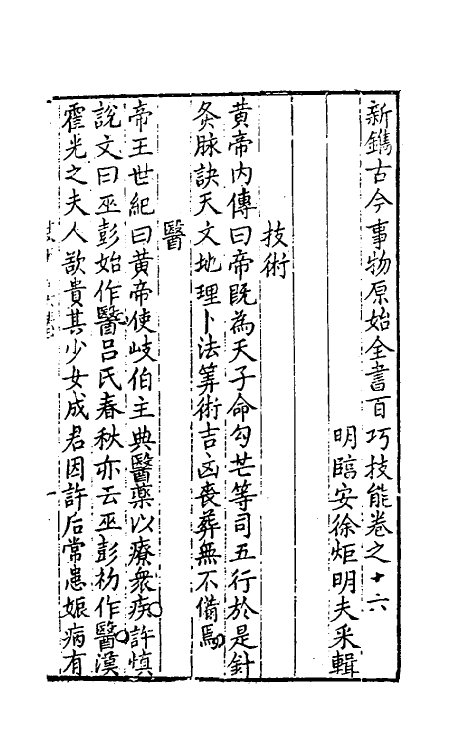 新鐫古今事物原始全書百巧技能卷之十六
明臨安徐炬明夫采輯
技術
黄帝内傳曰帝既為天子命勾芒等司五行於是針
灸脉訣天文地理卜法筭術吉凶喪葬無不備焉
醫
帝王世紀曰黄帝使岐伯主典醫藥以療衆疾許慎
說文曰巫彭始作醫吕氏春秋亦云巫彭初作醫漢
霍光之夫人欲貴其少女成君因許后常患娠病有